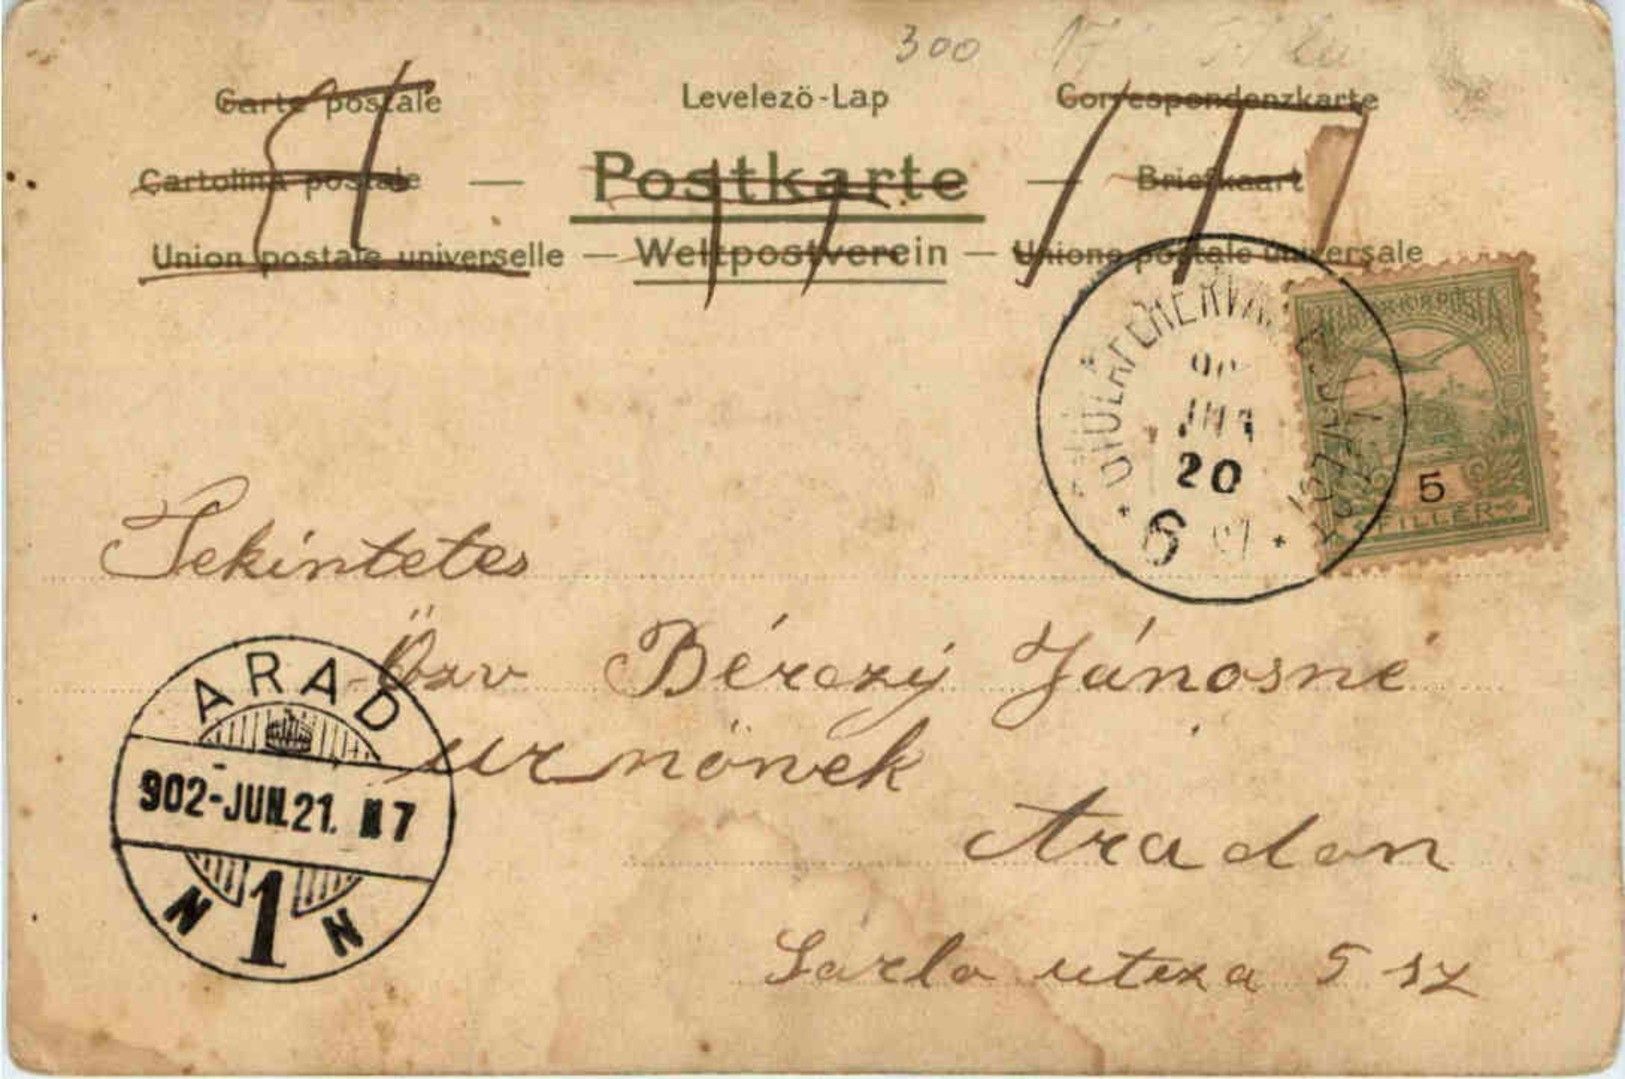 300
Carte postale Levelezö-Lap Correspondenzkarte
Cartolina postale — Postkarte — Briefkaart
Union postale universelle — Weltpostverein — Unione postale universale
MAGYAR KIR. POSTA
5
FILLÉR
20
6
Tekintetes
Özv Bérczÿ Jánosné
urnönek
Aradon
Sarló utcza 5 sz
ARAD
902-JUN.21. N7
N 1 N